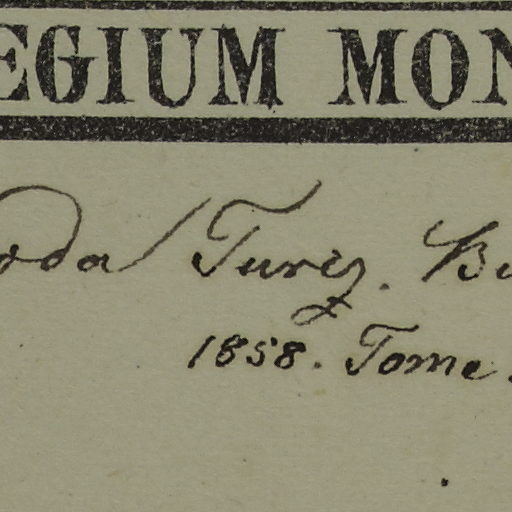 EGIUM MON
oda Turcz. Bu
1858. Tome